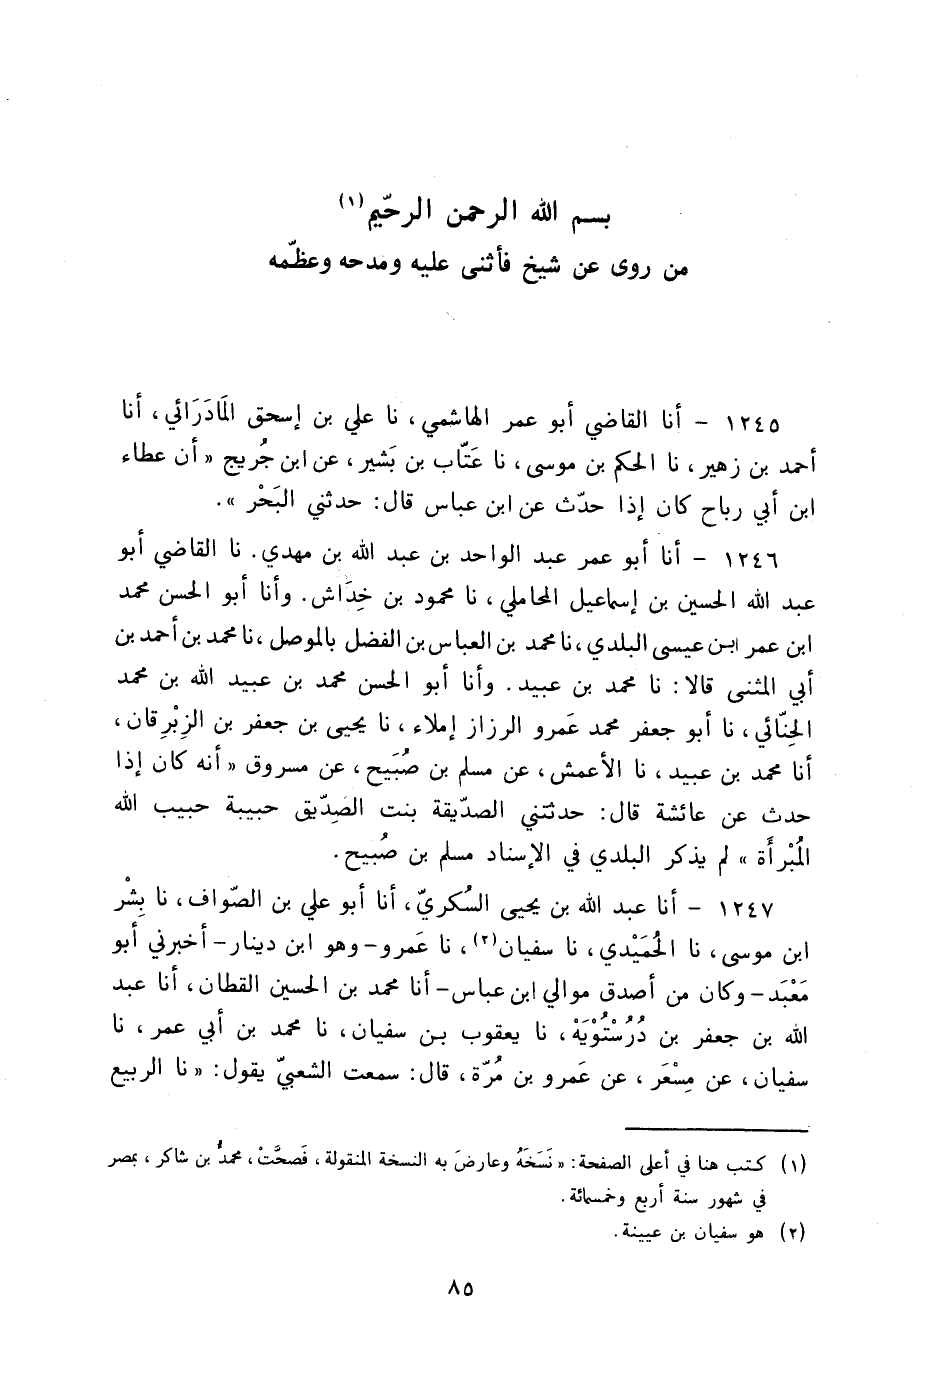 بسم الله الرحمن الرحّيم (١)
من روى عن شيخ فأثنى عليه ومدحه وعظّمه
١٢٤٥ - أنا القاضي أبو عمر الهاشمي، نا علي بن إسحق المَادَرَائي، أنا
أحمد بن زهير، نا الحكم بن موسى، نا عَتّاب بن بَشير، عن ابن جُريج « أن عطاء
ابن أبي رباح كان إذا حدّث عن ابن عباس قال: حدثني البَحْر ».
١٢٤٦ - أنا أبو عمر عبد الواحد بن عبد الله بن مهدي. نا القاضي أبو
عبد الله الحسين بن إسماعيل المحاملي، نا محمود بن خِدَاش. وأنا أبو الحسن محمد
ابن عمر ابن عيسى البلدي، نا محمد بن العباس بن الفضل بالموصل، نا محمد بن أحمد بن
أبي المثنى قالا: نا محمد بن عبيد. وأنا أبو الحسن محمد بن عبيد الله بن محمد
الحِنّائي، نا أبو جعفر محمد عَمرو الرزاز إملاء، نا يحيى بن جعفر بن الزِبْرِقان،
أنا محمد بن عبيد، نا الأعمش، عن مسلم بن صُبَيح، عن مسروق « أنه كان إذا
حدث عن عائشة قال: حدثتني الصدّيقة بنت الصِدّيق حبيبة حبيب الله
المُبْرأَة » لم يذكر البلدي في الإسناد مسلم بن صُبيح.
١٢٤٧ - أنا عبد الله بن يحيى السُكريّ، أنا أبو علي بن الصّواف، نا بِشْر
ابن موسى، نا الحُمَيْدي، نا سفيان(٢)، نا عَمرو - وهو ابن دينار - أخبرني أبو
مَعْبَد - وكان من أصدق موالي ابن عباس - أنا محمد بن الحسين القطان، أنا عبد
الله بن جعفر بن دُرُسْتُوَيْه، نا يعقوب بن سفيان، نا محمد بن أبي عمر، نا
سفيان، عن مِسْعَر، عن عَمرو بن مُرّة، قال: سمعت الشعبيّ يقول: « نا الربيع
(١) كتب هنا في أعلى الصفحة: « نَسَخَهُ وعارضَ به النسخة المنقولة، فَصحَّتْ، محمدُ بن شاكر، بمصر
في شهور سنة أربع وخمسمائة.
(٢) هو سفيان بن عيينة.
٨٥